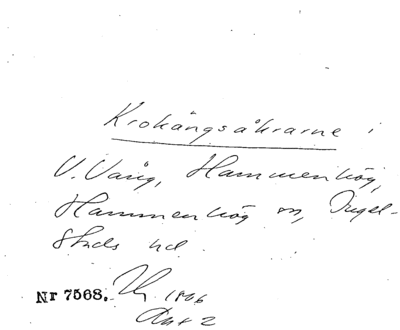 Krokängsåkrarne i
V. Vång, Hammenhög,
Hammenhög sn, Ingel-
stads hd.
Nr 7568. 1806
Akt 2